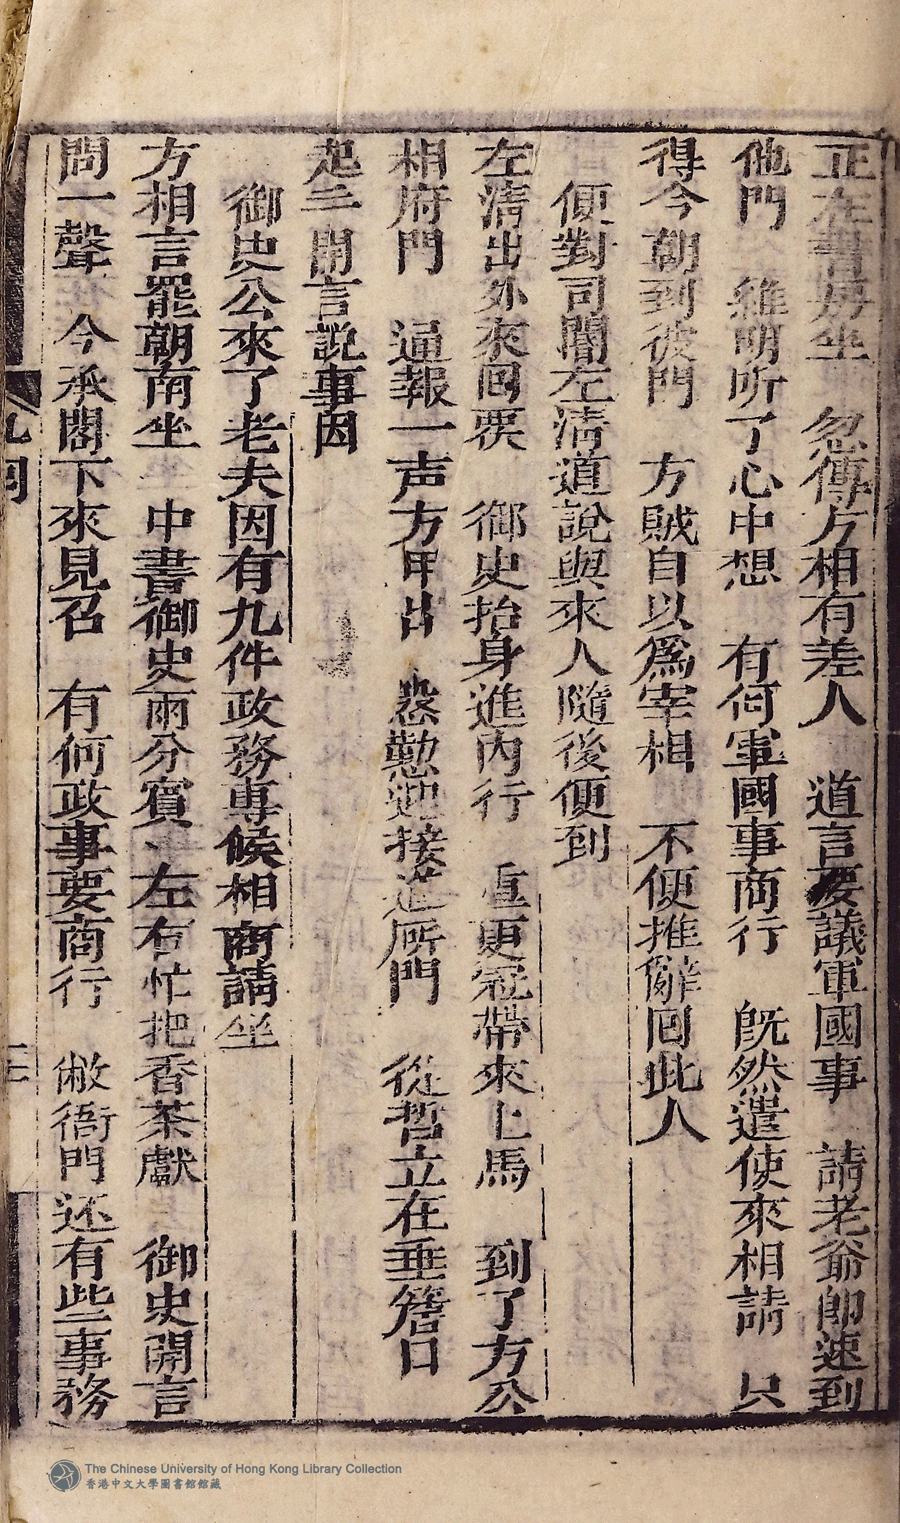 正在書房坐　忽傳方相有差人　道言要議軍國事　請老爺即速到
他門　維明听了心中想　有何軍國事商行　既然遣使來相請　只
得今朝到彼門　方賊自以爲宰相　不便推辭回此人
便對司閽左淸道說與來人隨後便到
左淸出外來回覆　御史抬身進內行　重更冠帶來上馬　到了方公
相府門　通報一声方甲出　慇懃迎接進所門　從哲立在垂簷口
起手開言說事因
御史公來了老夫因有九件政務專候相商請坐
方相言罷朝南坐　中書御史兩分賓　左右忙把香茶獻　御史開言
問一聲　今承閣下來見召　有何政事要商行　敝衙門还有些事務
The Chinese University of Hong Kong Library Collection
香港中文大學圖書館館藏